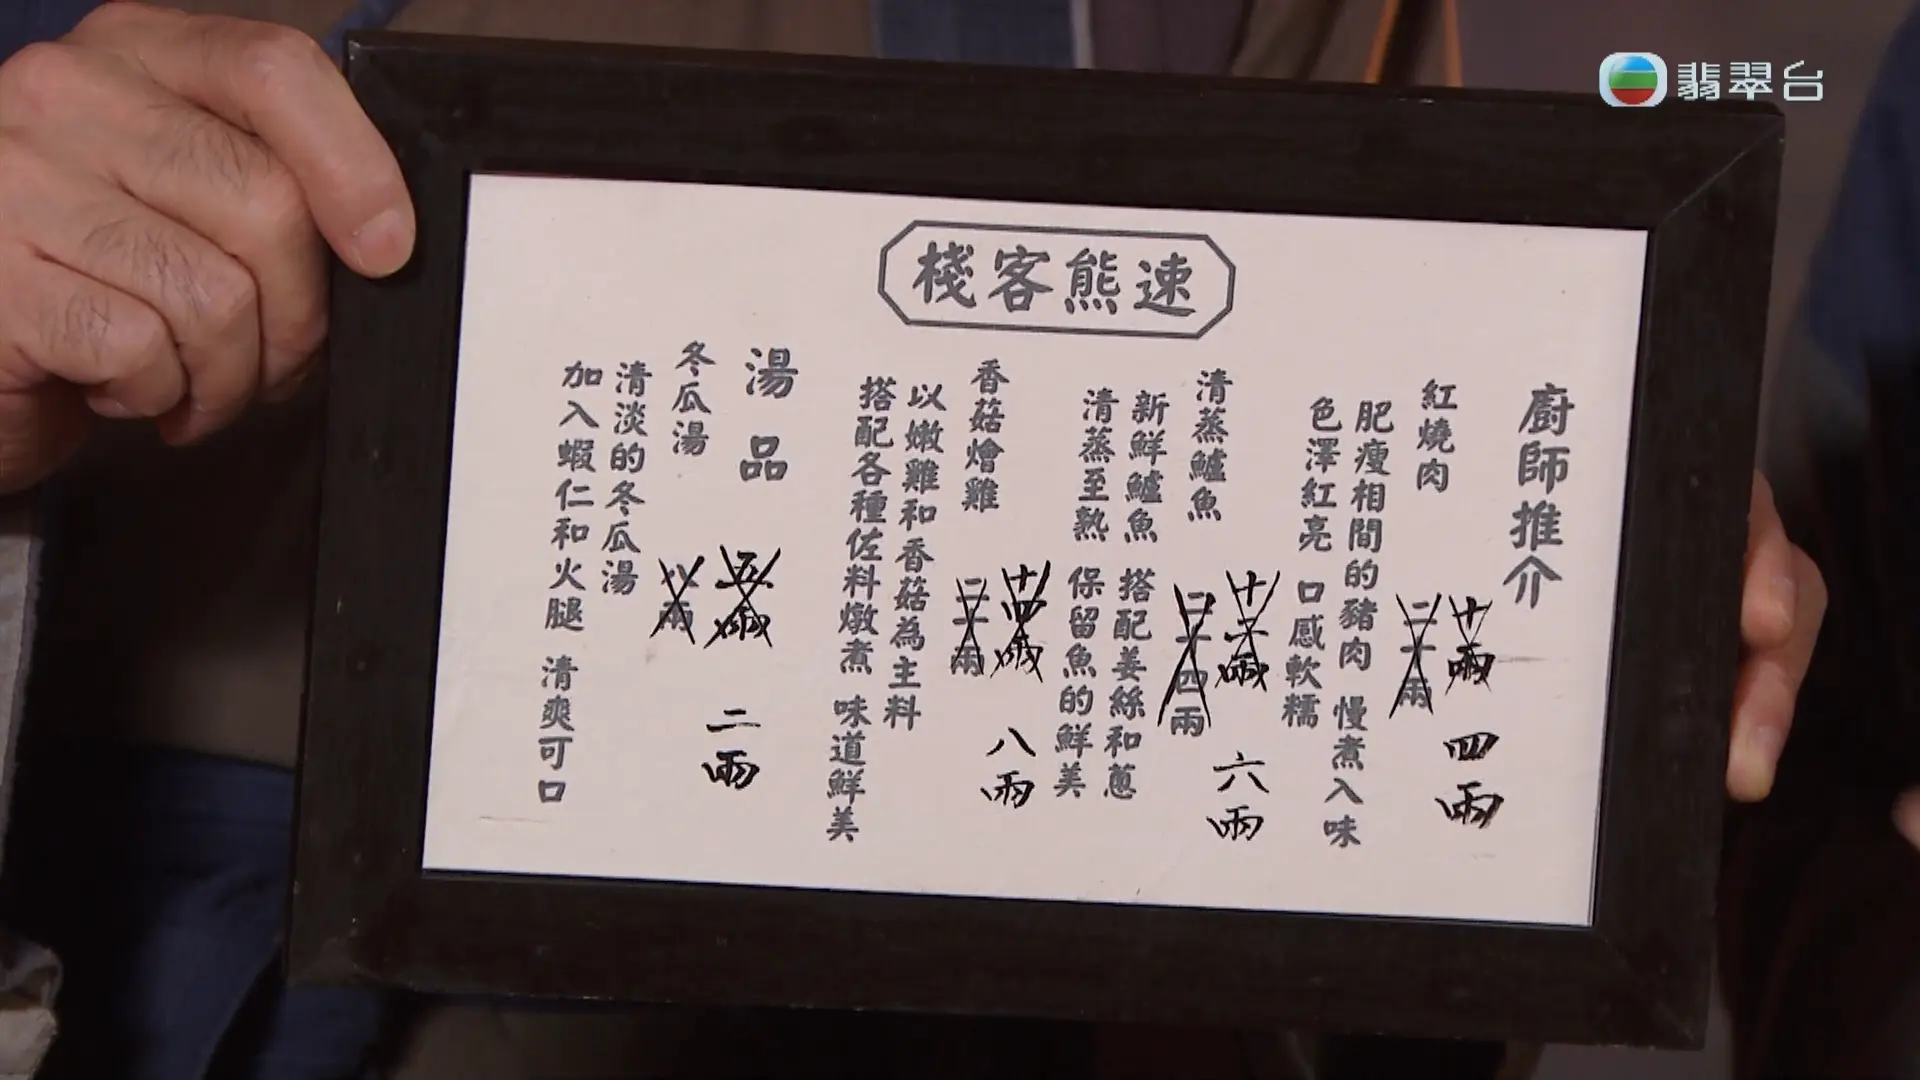 翡翠台
速熊客棧
廚師推介
紅燒肉
二十兩
十兩
四兩
肥瘦相間的豬肉 慢煮入味
色澤紅亮 口感軟糯
清蒸鱸魚
二十四兩
十二兩
六兩
新鮮鱸魚 搭配姜絲和蔥
清蒸至熟 保留魚的鮮美
香菇燴雞
二十兩
十四兩
八兩
以嫩雞和香菇為主料
搭配各種佐料燉煮 味道鮮美
湯品
冬瓜湯
八兩
五兩
二兩
清淡的冬瓜湯
加入蝦仁和火腿 清爽可口